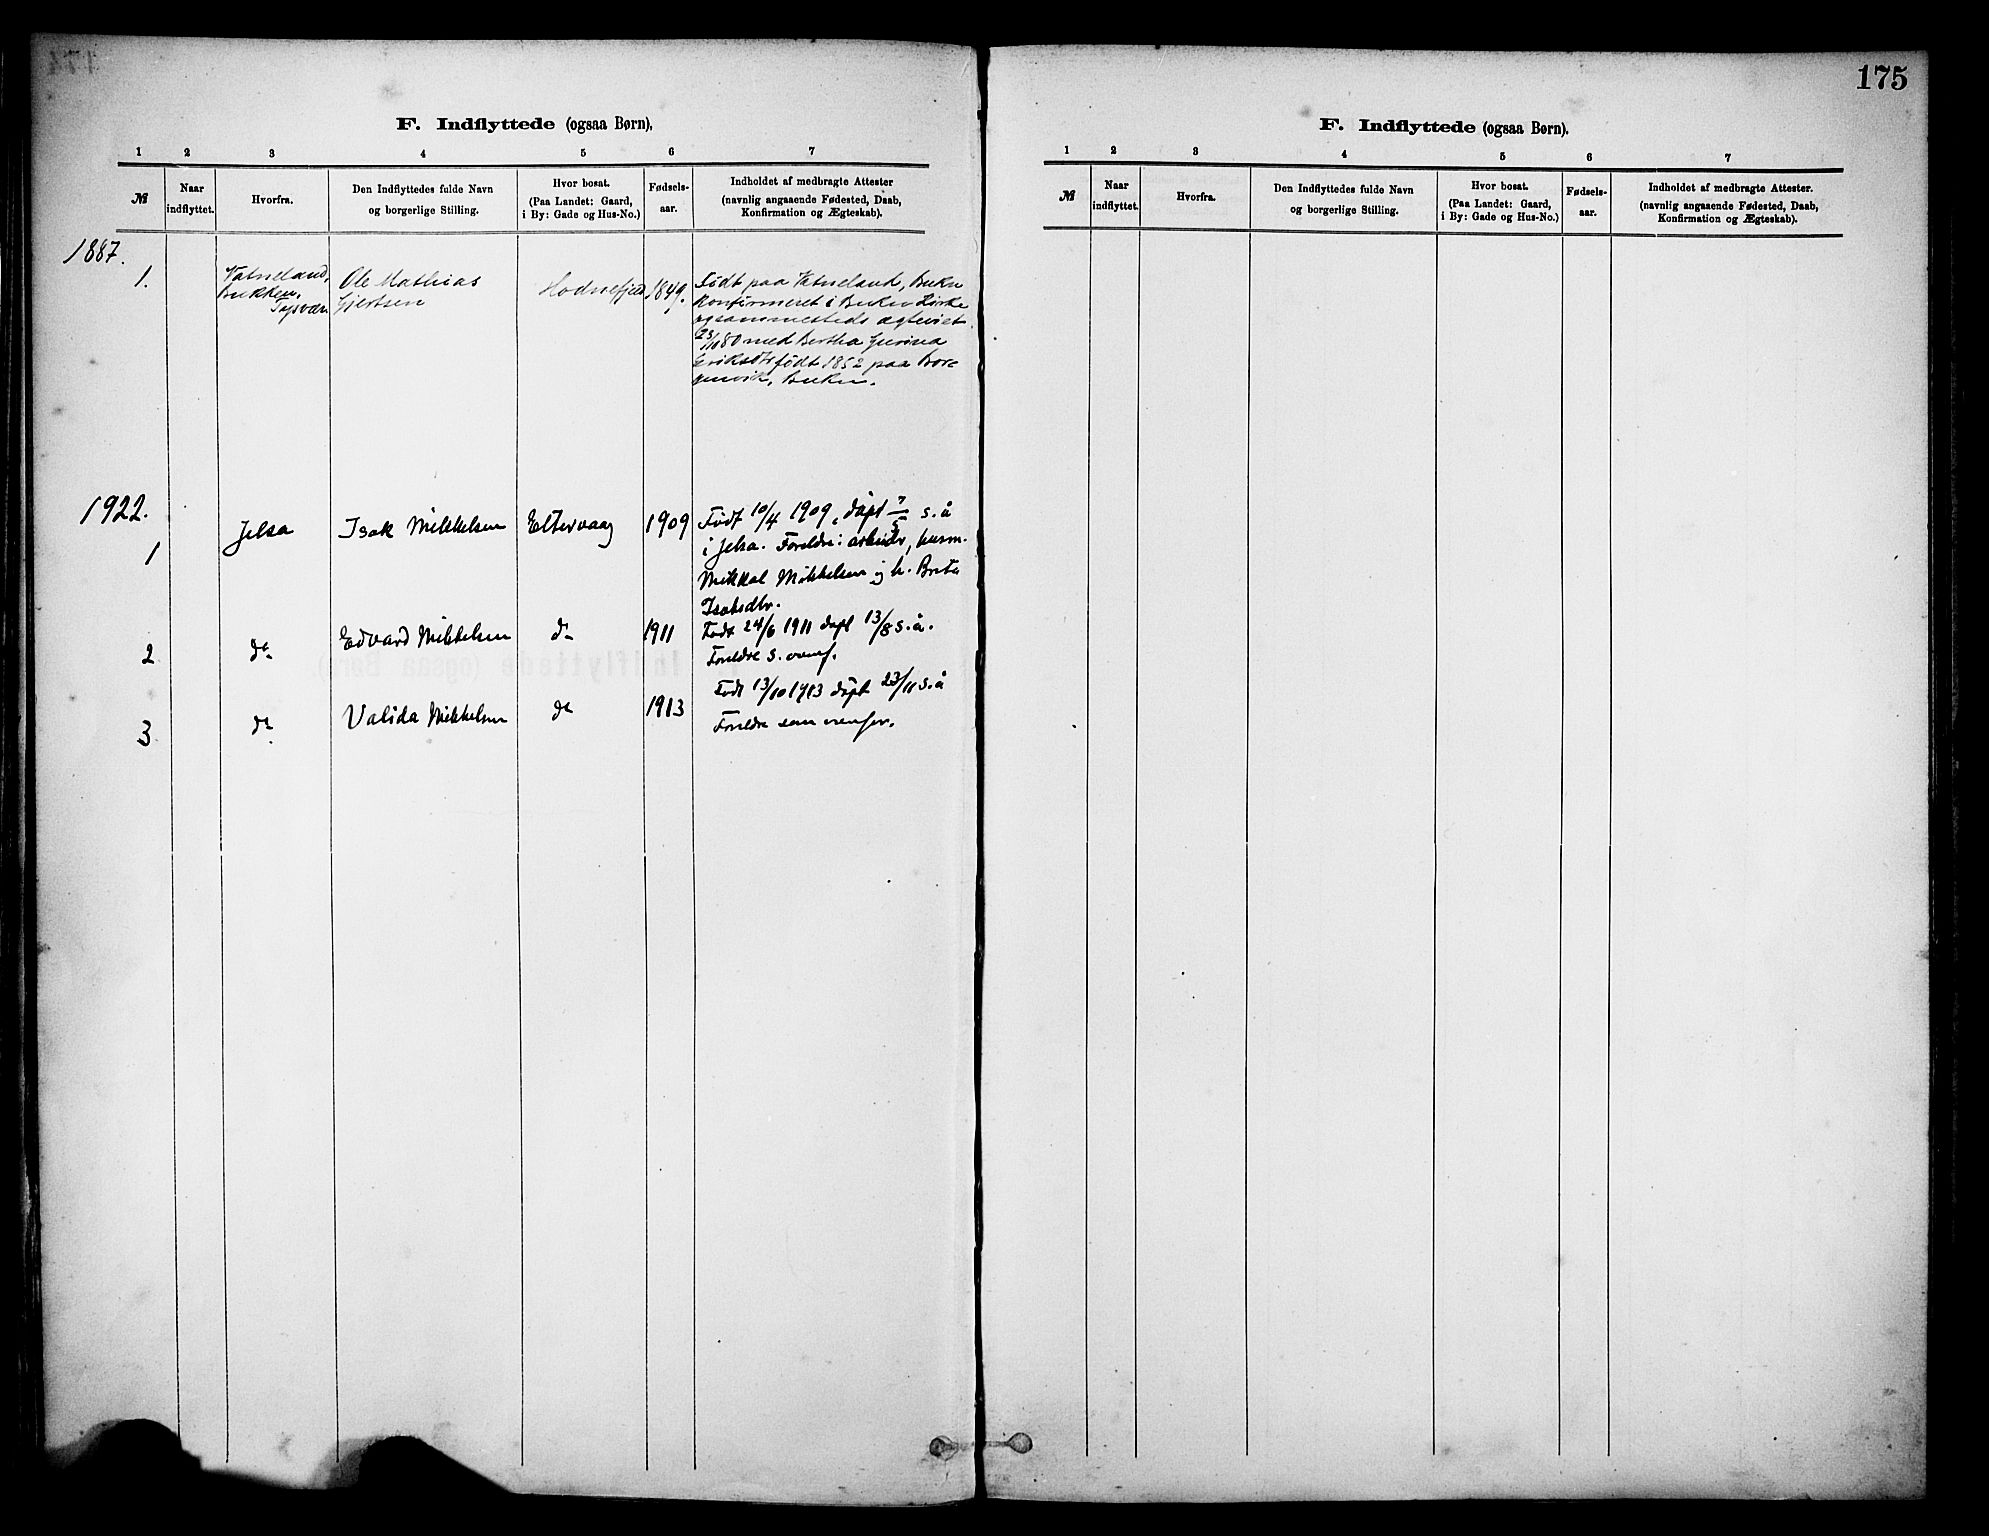 175
F. Indflyttede (ogsaa Børn),
1 2 3 4 5 6 7
№ Naar indflyttet. Hvorfra. Den Indflyttedes fulde Navn og borgerlige Stilling. Hvor bosat. (Paa Landet: Gaard, i By: Gade og Hus-No.) Fødsels-aar. Indholdet af medbragte Attester (navnlig angaaende Fødested, Daab, Konfirmation og Ægteskab).
1887.
1. Vatneland, Bukken, Ole Mathias Gjertsen Hodnefjeld 1849. Født paa Vatneland, Bukn
Konfirmeret i Bukn Kirke
og sammesteds ægteviet
23/10 80 med Bertha
født 1852 paa
Bukn.
1922.
1 Jelsa Isak Mikkelsen Eltervaag 1909 Født 10/4 1909, døpt 7/5 s. å
i Jelsa. Foreldre: arbeider, husm.
Mikkal Mikkelsen og h. Brita
Isaksdtr.
2 do Edvard Mikkelsen do 1911 Født 24/6 1911 døpt 13/8 s. å.
Foreldre s. ovenf.
3 do Valida Mikkelsen do 1913 Født 13/10 1913 døpt 23/11 s. å
Foreldre som ovenfor.
F. Indflyttede (ogsaa Børn).
1 2 3 4 5 6 7
№ Naar indflyttet. Hvorfra. Den Indflyttedes fulde Navn og borgerlige Stilling. Hvor bosat. (Paa Landet: Gaard, i By: Gade og Hus-No.) Fødsels-aar. Indholdet af medbragte Attester. (navnlig angaaende Fødested, Daab, Konfirmation og Ægteskab).